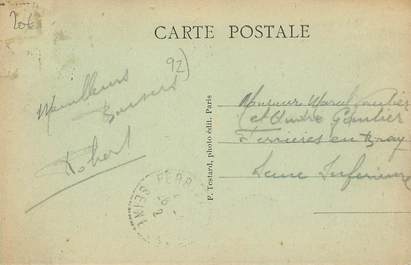 206
CARTE POSTALE
92)
Meilleurs
Baisers
Robert
F. Testard, photo édit. Paris
Monsieur Marcel Gautier
et André Gautier
Ferrières en Bray
Seine Inférieure